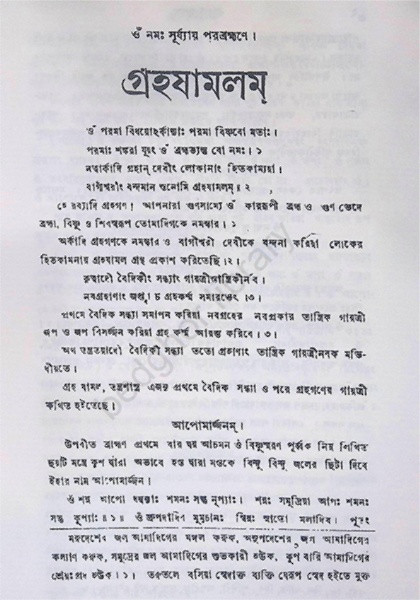 ওঁ নমঃ সূর্য্যায় পরব্রহ্মণে।
গ্রহযামলম্
ওঁ পরমা বিধয়োঽর্কাদ্যাঃ পরমা বিষ্ণবো মতাঃ।
পরমাঃ শঙ্করা যূয়ং ওঁ ব্রহ্মভ্যস্ত বো নমঃ। ১
নত্বার্কাদি গ্রহান্ দেবীং লোকানাং হিতকাম্যয়া।
বাগীশ্বরীং বন্দমান স্তনোমি গ্রহযামলম্॥ ২
হে রব্যাদি গ্রহগণ! আপনারা গুণসাম্যে ওঁ কাররূপী ব্রহ্ম ও গুণ ভেদে
ব্রহ্মা, বিষ্ণু ও শিবস্বরূপ তোমাদিগকে নমস্কার। ১
অর্কাদি গ্রহগণকে নমস্কার ও বাগীশ্বরী দেবীকে বন্দনা করিয়া লোকের
হিতকামনায় গ্রহযামল গ্রন্থ প্রকাশ করিতেছি। ২।
কৃত্বাদৌ বৈদিকীং সন্ধ্যাং গায়ত্রীতান্ত্রিকীর্নব।
নবগ্রহাণাং জপ্ত্বা চ গ্রহকর্ম্ম সমারভেৎ। ৩।
প্রথমে বৈদিক সন্ধ্যা সমাপন করিয়া নবগ্রহের নবপ্রকার তান্ত্রিক গায়ত্রী
জপ ও জপ বিসর্জ্জন করিয়া গ্রহ কর্ম্ম আরম্ভ করিবে। ৩।
অথ তন্ত্রতয়াদৌ বৈদিকী সন্ধ্যা ততো গ্রহাণাং তান্ত্রিক গায়ত্রীনবক মভি-
ধীয়তে।
গ্রহ যামল, তন্ত্রশাস্ত্র এজন্য প্রথমে বৈদিক সন্ধ্যা ও পরে গ্রহগণের গায়ত্রী
কথিত হইতেছে।
আপোমার্জ্জনম্।
উপবীত ব্রাহ্মণ প্রথমে বার দ্বয় আচমন ও বিষ্ণুস্মরণ পূর্ব্বক নিম্ন লিখিত
ছয়টি মন্ত্রে কুশ দ্বারা অভাবে হস্ত দ্বারা মস্তকে বিন্দু বিন্দু জলের ছিটা দিবে
ইহার নাম আপোমার্জ্জন।
ওঁ শন্ন আপো ধন্বন্যাঃ শমনঃ সন্তু নূপ্যাঃ। শন্নঃ সমুদ্রিয়া আপঃ শমনঃ
সন্তু কূপ্যাঃ॥ ১॥ ওঁ দ্রুপদাদিব মুমুচানঃ স্বিন্নঃ স্নাতো মলাদিব। পূতং
মরুদেশের জল আমাদিগের মঙ্গল করুক, অনূপদেশের জল আমাদিগের
কল্যাণ করুক, সমুদ্রের জল আমাদিগের শুভকারী হউক, কূপ বারি আমাদিগের
শ্রেয়ঃপ্রদ হউক। ১। তরুতলে বসিয়া স্বেদাক্ত ব্যক্তি যেরূপ স্বেদ হইতে মুক্ত